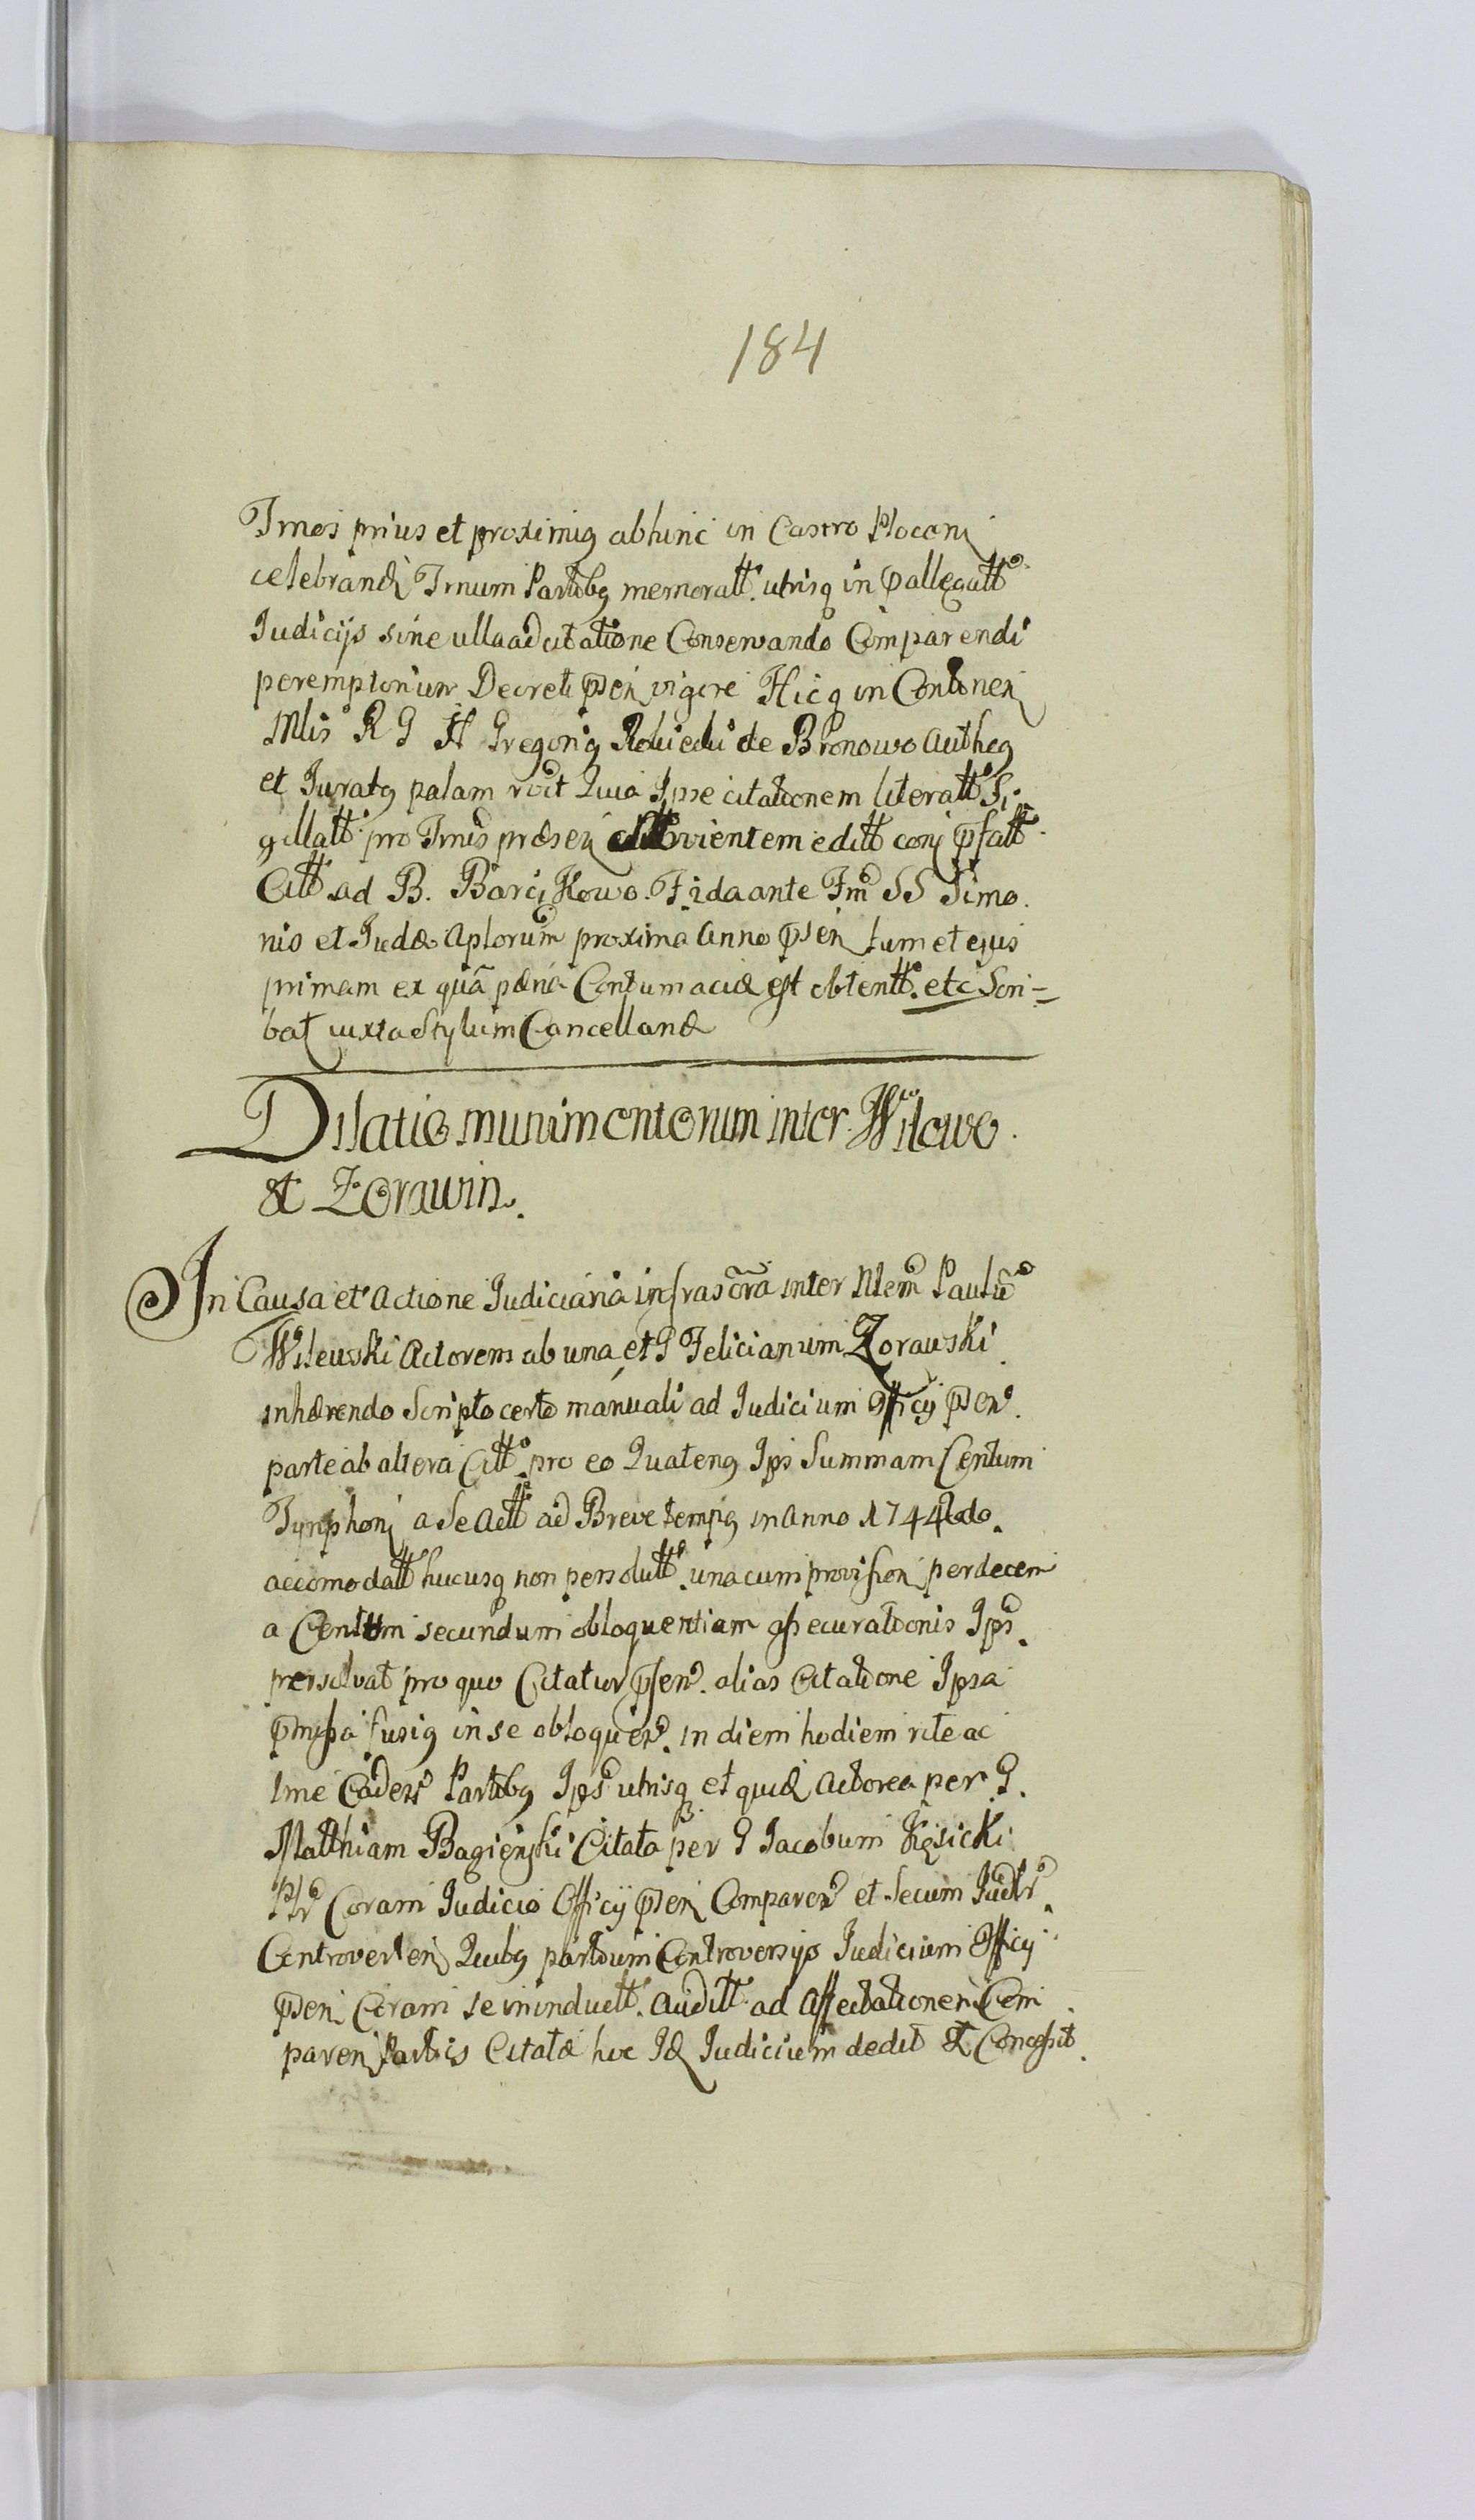 184
Tmos prius et proximis abhinc in Castro Plocen
celebrand Tmum Partibq memoratt. utrisq in pallegatt
Judicijs sine ulla adcitatione Conservando Comparendi
peremptorium Decreti psen vigore Hicq in Conttinen
Mlis R G Gregoriq de Bronowo Autheq
et Juratq palam rvit Quia Ipse citationem literatt Si-
gillatt pro Tmis præsen editt conj psatt
Citt ad B. Barcikowo. F. 2da ante Fm SS Simo.
nis et Judæ Aplorum proxima Anno psen tum et ejus
primam ex qua pæna Contumaciæ est obtentt. etc Scri=
bat juxta Stylum Cancellariæ
Dilatio munimentorum inter Wilewo.
et Zorawin.
In Causa et Actione Judiciaria infrascra inter Nlem Paulu
Wilewski Actorem ab una et G Felicianum Zorawski
inhærendo Scripto certo manuali ad Judicium Officij psen.
parte ab altera Citt. pro eo Quatenq Ips Summam Centum
Tynphon a Se Actt ad Breve tempq in Anno 1744to
accomodatt hucusq non persolutt. una cum provision per decem
a Centum secundum obloquentiam assecurationis Ips.
persolvat pro quo Citatur psen. alias Citatione Ipsa
pmissa fusiq in se obloquen. in diem hodiern rite ac
lme Caden Partibq Ips utrisq et quid Actorea per G.
Matthiam Bagieński Citata per G Jacobum Kęsicki
Plr Coram Judicio Officij psen Comparen et Secum Judlr.
Controverten Quibq partium Controversijs Judicium Officij
psen Coram se ininductt. Auditt ad Affectationem Com
paren Partis Citatæ hoc Id Judicium dedit et Concessit.